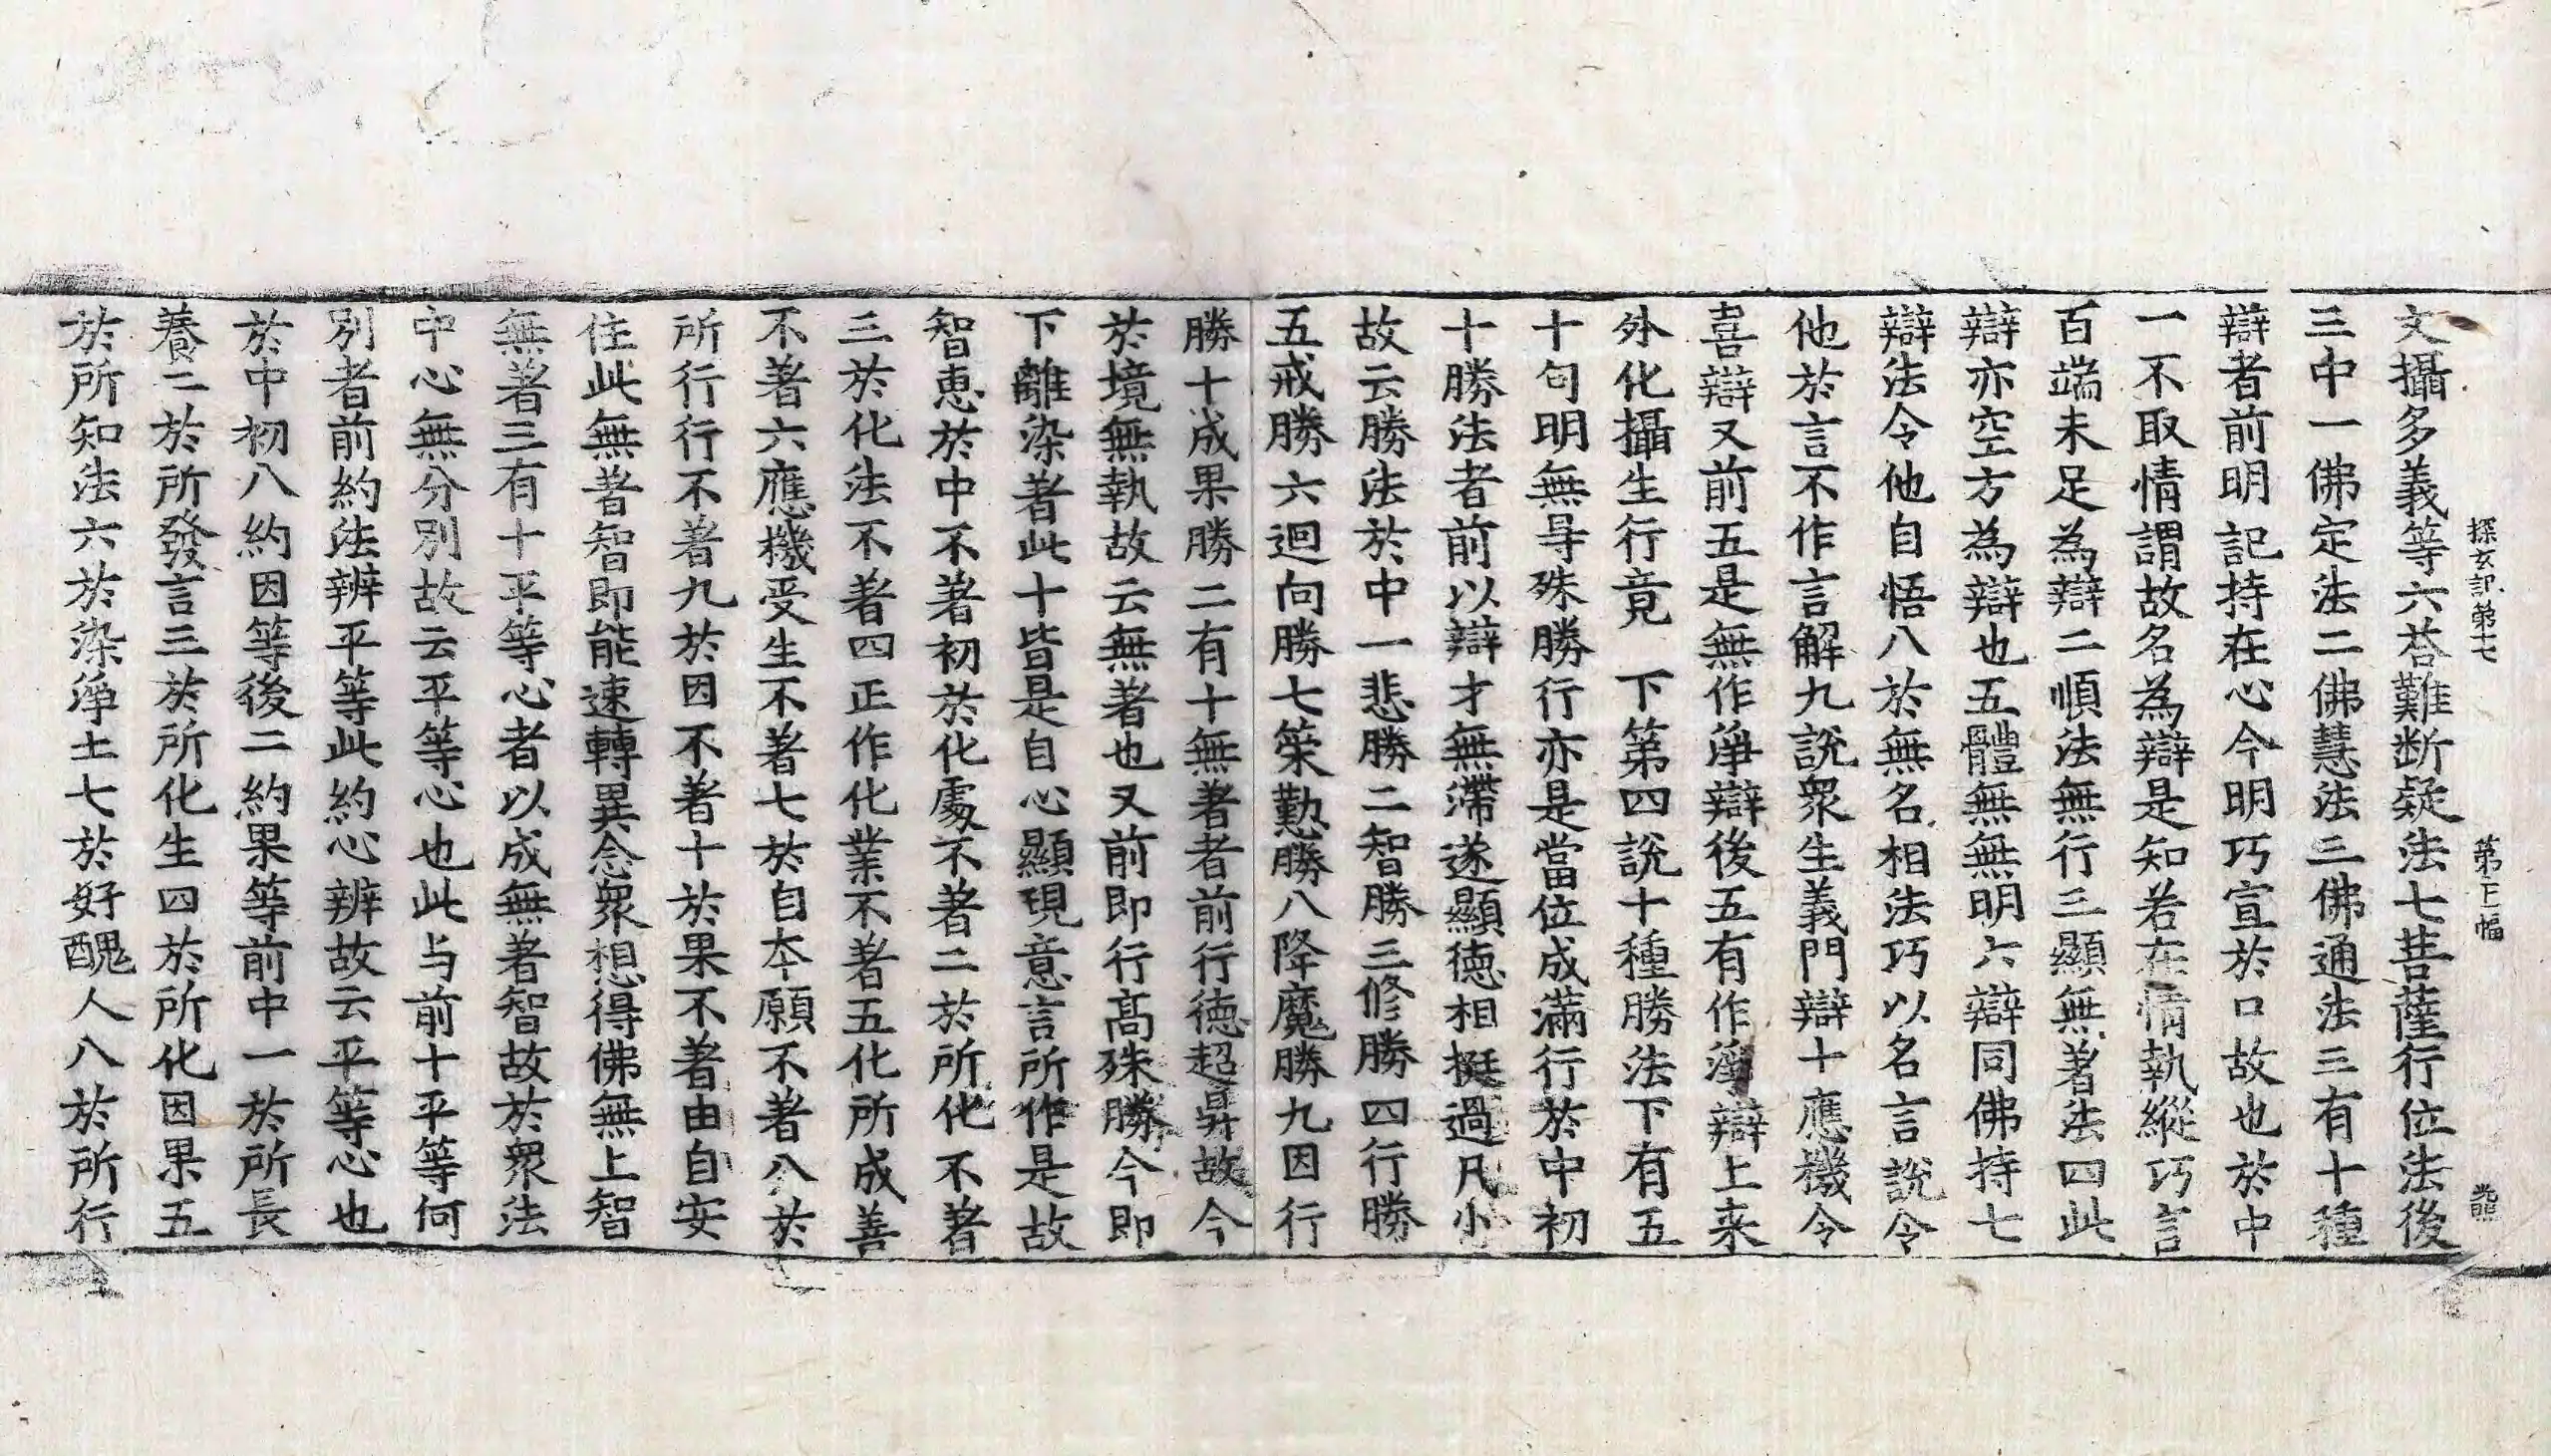 探玄記第七 第三幅 熙
文攝多義等六荅難断疑法七菩薩行位法後
三中一佛定法二佛慧法三佛通法三有十種
辯者前明記持在心今明巧宣於口故也於中
一不取情謂故名為辯是知若在情執縱巧言
百端未足為辯二順法無行三顯無著法四此
辯亦空方為辯也五體無無明六辯同佛持七
辯法令他自悟八於無名相法巧以名言說令
他於言不作言解九說衆生義門辯十應機令
喜辯又前五是無作淨辯後五有作淨辯上来
外化攝生行竟　下第四說十種勝法下有五
十句明無㝵殊勝行亦是當位成滿行於中初
十勝法者前以辯才無滯遂顯徳相挺過凡小
故云勝法於中一悲勝二智勝三修勝四行勝
五戒勝六迴向勝七策懃勝八降魔勝九因行
勝十成果勝二有十無著者前行徳超昇故今
於境無執故云無著也又前即行髙殊勝今即
下離染著此十皆是自心顯現意言所作是故
智恵於中不著初於化處不著二於所化不著
三於化法不著四正作化業不著五化所成善
不著六應機受生不著七於自本願不著八於
所行行不著九於因不著十於果不著由自安
住此無著智即能速轉異念衆想得佛無上智
無著三有十平等心者以成無著智故於衆法
中心無分別故云平等心也此与前十平等何
別者前約法辨平等此約心辨故云平等心也
於中初八約因等後二約果等前中一於所長
養二於所發言三於所化生四於所化因果五
於所知法六於染淨土七於好醜人八於所行